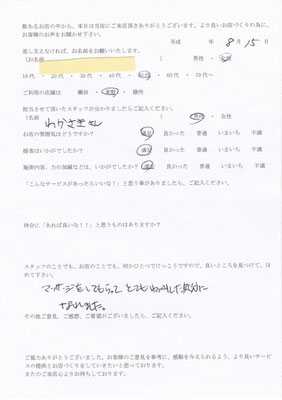 数あるお店の中から、本日は当店にご来店頂きありがとうございます。より良いお店づくりの為に、
お客様の声をお聞かせ下さい。
平成 年 8月 15日
差し支えなければ、お名前をお願いいたします。
(お名前 ) 男性 ・ 女性
10代 ・ 20代 ・ 30代 ・ 40代 ・ 50代 ・ 60代 ・ 70代〜
ご利用の店舗は 瀬田 ・ 草津 ・ 膳所
担当させて頂いたスタッフが分かりましたらご記入ください。
(名前 わかさきさん ) 男性 ・ 女性
お店の雰囲気はどうですか? 満足 良かった 普通 いまいち 不満
接客はいかがでしたか? 満足 良かった 普通 いまいち 不満
施術内容、力の加減などは、いかがでしたか? 満足 良かった 普通 いまいち 不満
「こんなサービスがあったらいいな!」と思う事がありましたら、ご記入ください。
待合に「あれば良いな!!」と思うものはありますか?
スタッフのことでも、お店のことでも、何かひとつでけっこうですので、良いところを見つけて、ほ
めて下さい。
マッサージをしてもらって とても 気分に
なれました。
その他ご意見、ご感想、ご要望がございましたら、ご記入ください。
ご協力ありがとうございました。お客様のご意見を参考に、感動を与えられるよう、より良いサービ
スの提供とお店づくりをしていきたいと思っております。
またのご来店心よりお待ちしております。